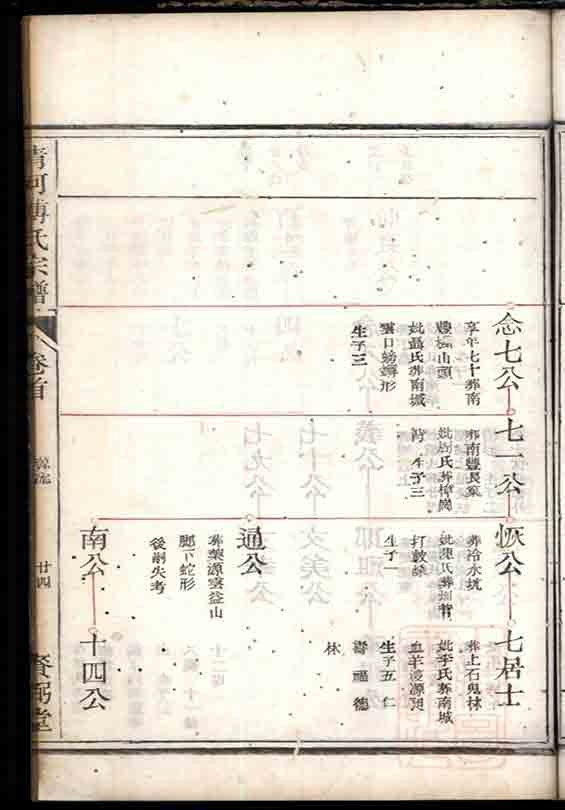 念七公
享年七十葬南
豐楓山頭
妣聶氏葬南城
雲口螃蟹形
生子三
七一公
葬南豐長窠
妣胡氏葬樟崗
背 生子三
恢公
葬冷水坑
妣陳氏葬州背
打鼓嶺
生子一
七居士
葬上石鬼林
妣李氏葬南城
血羊凌源
生子五 仁
壽 福 德
林
通公
葬藥源雲益山
腳下蛇形
後嗣失考
南公
十四公
清河傅氏宗譜
卷首
源流
廿四
賚弼堂